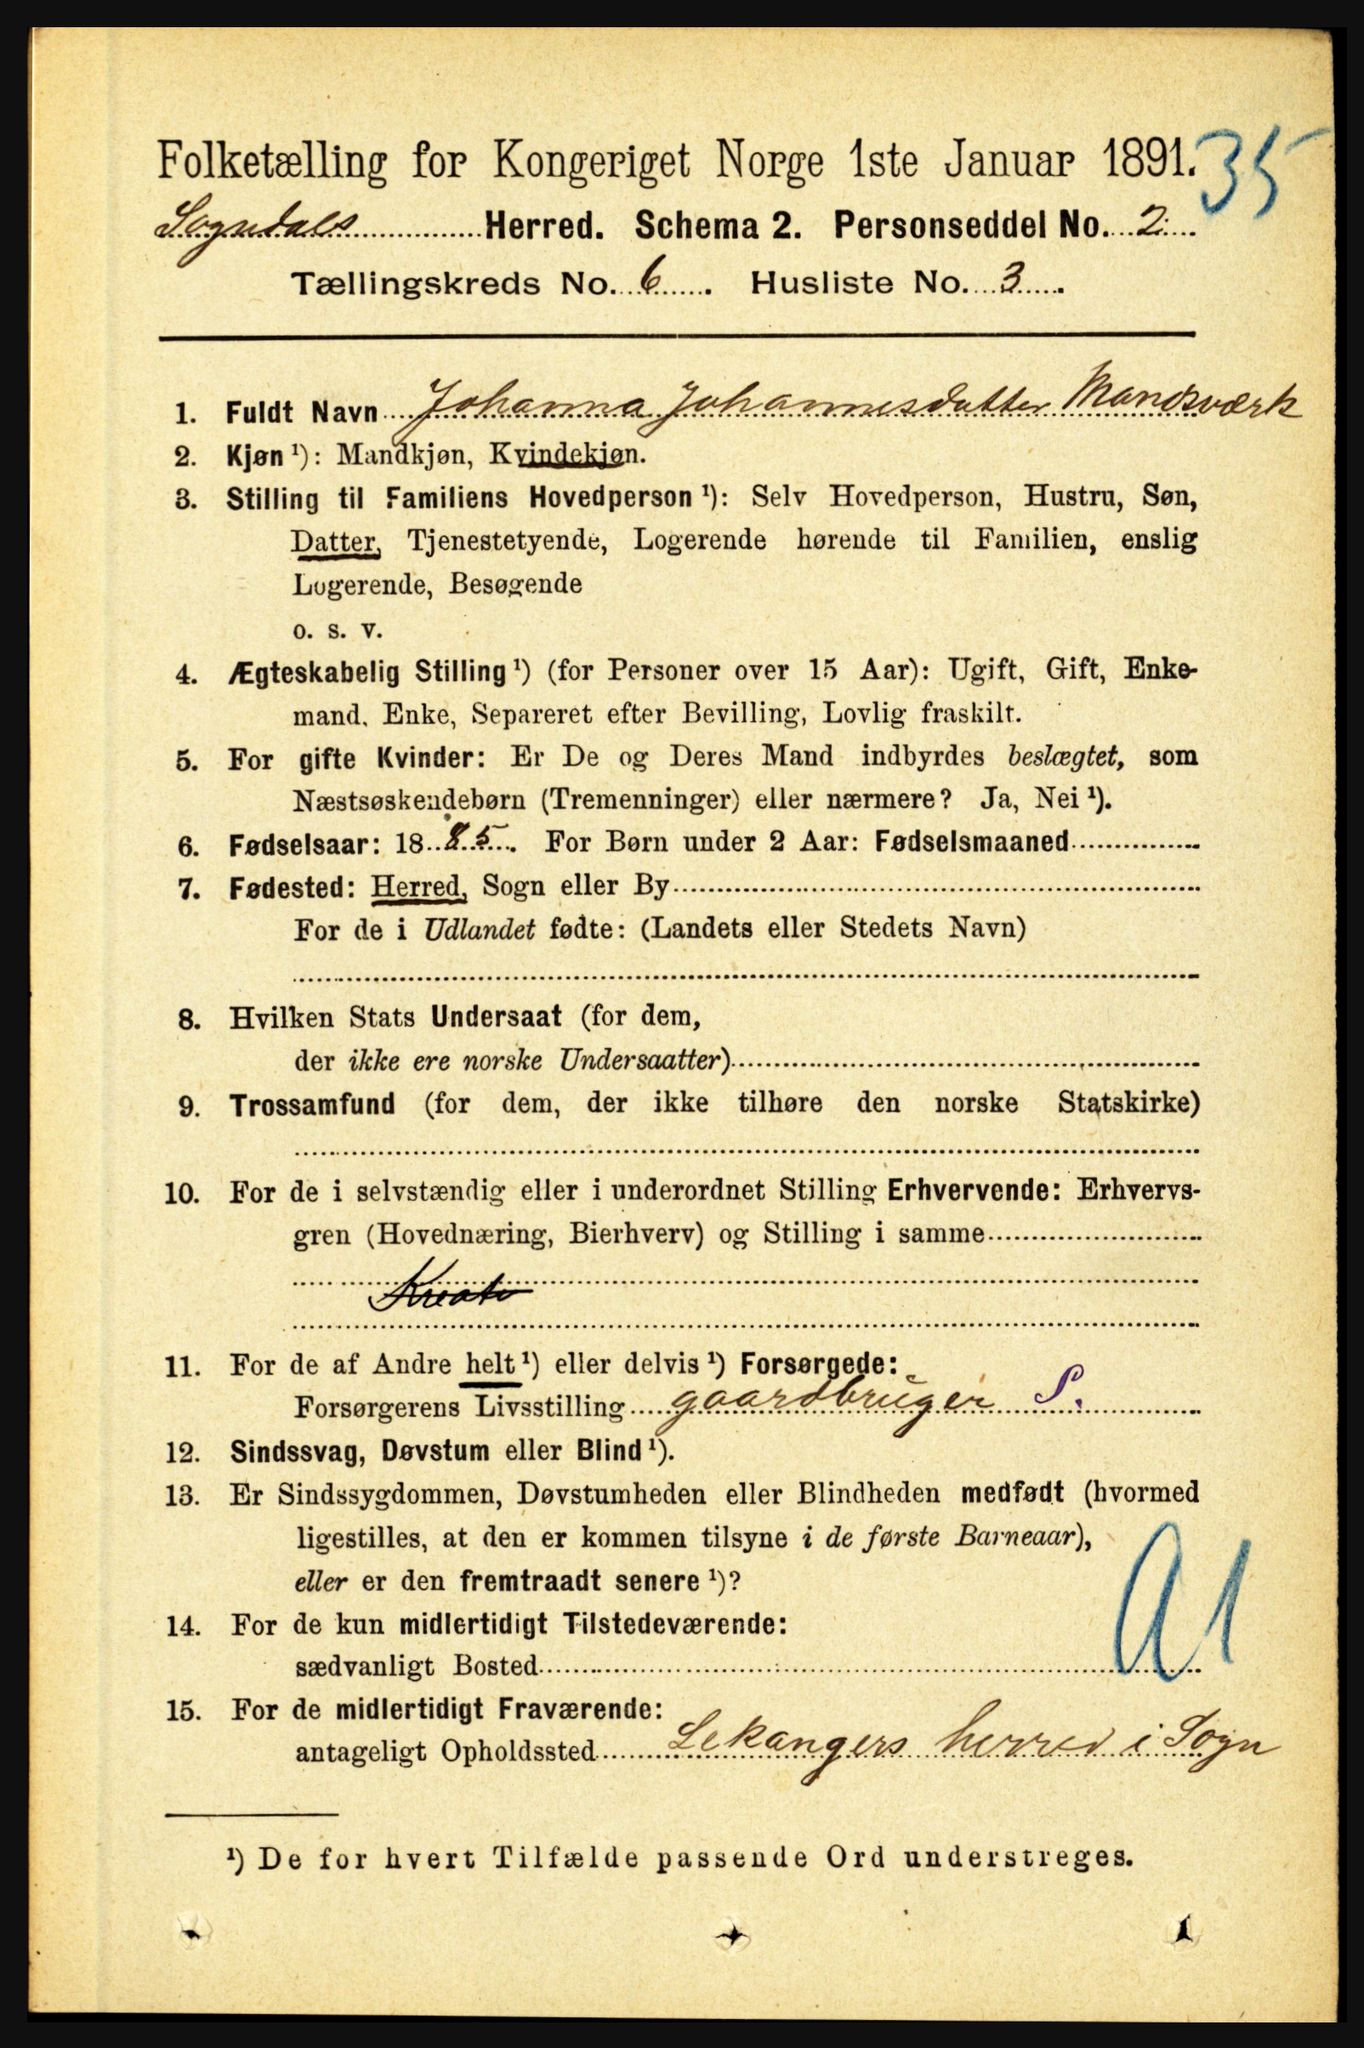 Folketælling for Kongeriget Norge 1ste Januar 1891. 35
Sogndals Herred. Schema 2. Personseddel No. 2
Tællingskreds No. 6. Husliste No. 3.
1. Fuldt Navn Johanna Johannesdatter Mandsværk
2. Kjøn ¹): Mandkjøn, Kvindekjøn.
3. Stilling til Familiens Hovedperson ¹): Selv Hovedperson, Hustru, Søn,
Datter, Tjenestetyende, Logerende hørende til Familien, enslig
Logerende, Besøgende
o. s. v.
4. Ægteskabelig Stilling ¹) (for Personer over 15 Aar): Ugift, Gift, Enke-
mand, Enke, Separeret efter Bevilling, Lovlig fraskilt.
5. For gifte Kvinder: Er De og Deres Mand indbyrdes beslægtet, som
Næstsøskendebørn (Tremenninger) eller nærmere? Ja, Nei ¹).
6. Fødselsaar: 1885. For Børn under 2 Aar: Fødselsmaaned
7. Fødested: Herred, Sogn eller By
For de i Udlandet fødte: (Landets eller Stedets Navn)
8. Hvilken Stats Undersaat (for dem,
der ikke ere norske Undersaatter)
9. Trossamfund (for dem, der ikke tilhøre den norske Statskirke)
10. For de i selvstændig eller i underordnet Stilling Erhvervende: Erhvervs-
gren (Hovednæring, Bierhverv) og Stilling i samme
11. For de af Andre helt ¹) eller delvis ¹) Forsørgede:
Forsørgerens Livsstilling gaardbruger S.
12. Sindssvag, Døvstum eller Blind ¹).
13. Er Sindssygdommen, Døvstumheden eller Blindheden medfødt (hvormed
ligestilles, at den er kommen tilsyne i de første Barneaar),
eller er den fremtraadt senere ¹)?
14. For de kun midlertidigt Tilstedeværende:
sædvanligt Bosted
15. For de midlertidigt Fraværende:
antageligt Opholdssted Lekangers herred i Sogn
¹) De for hvert Tilfælde passende Ord understreges.